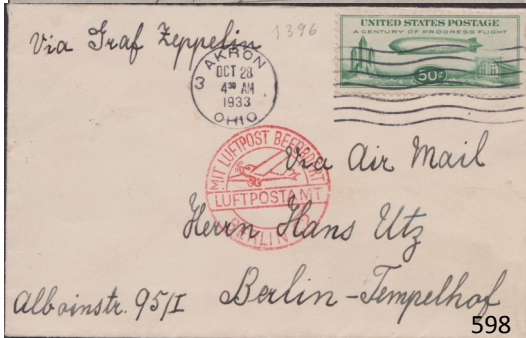 1396
Via Graf Zeppelin
UNITED STATES POSTAGE
A CENTURY OF PROGRESS FLIGHT
50¢
3 AKRON
OCT 28
4 30 AM
1933
OHIO
MIT LUFTPOST BEFÖRDERT
LUFTPOSTAMT
BERLIN
Via Air Mail
Herrn Hans Utz
Berlin-Tempelhof
Alboinstr. 95/I
598